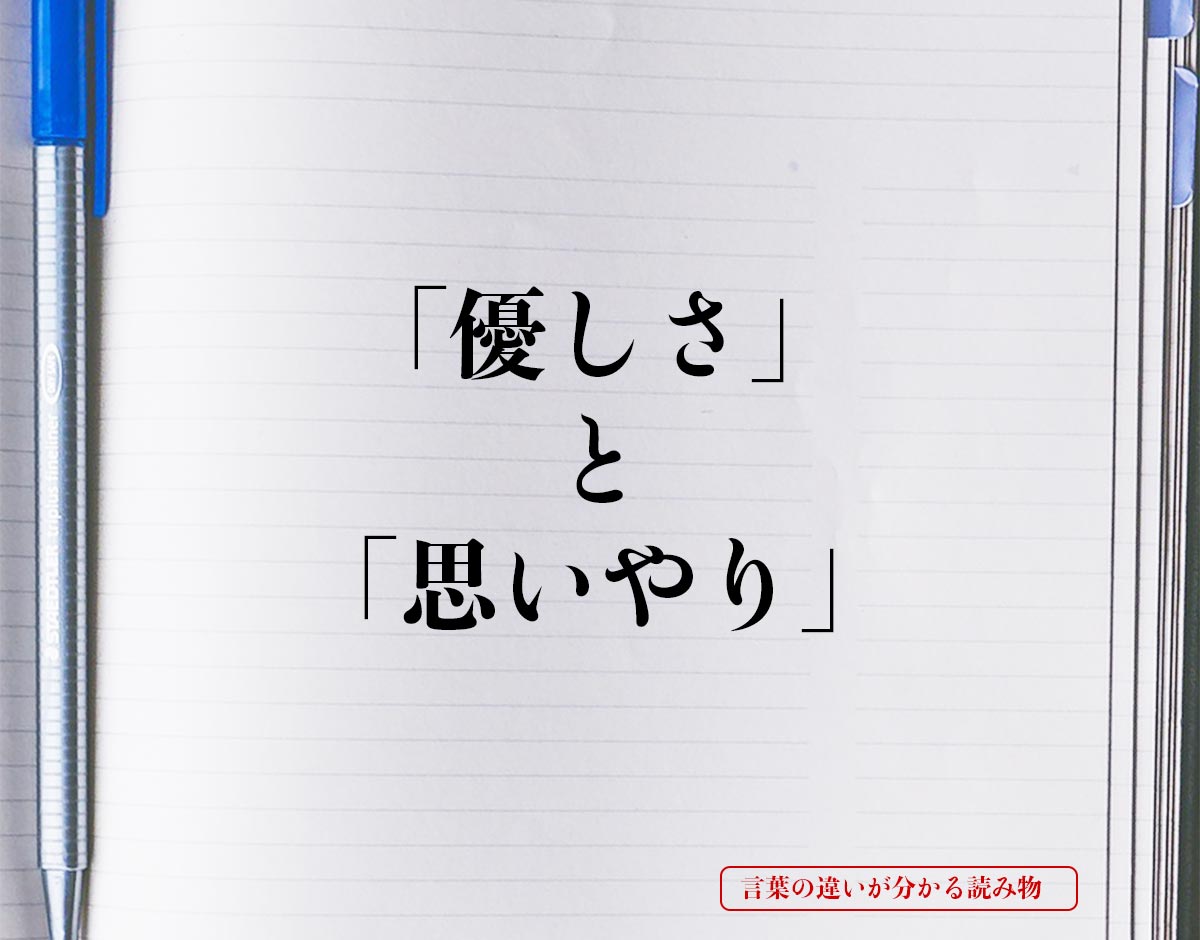 「優しさ」
と
「思いやり」
STAEDTLER triplus fineliner
言葉の違いが分かる読み物